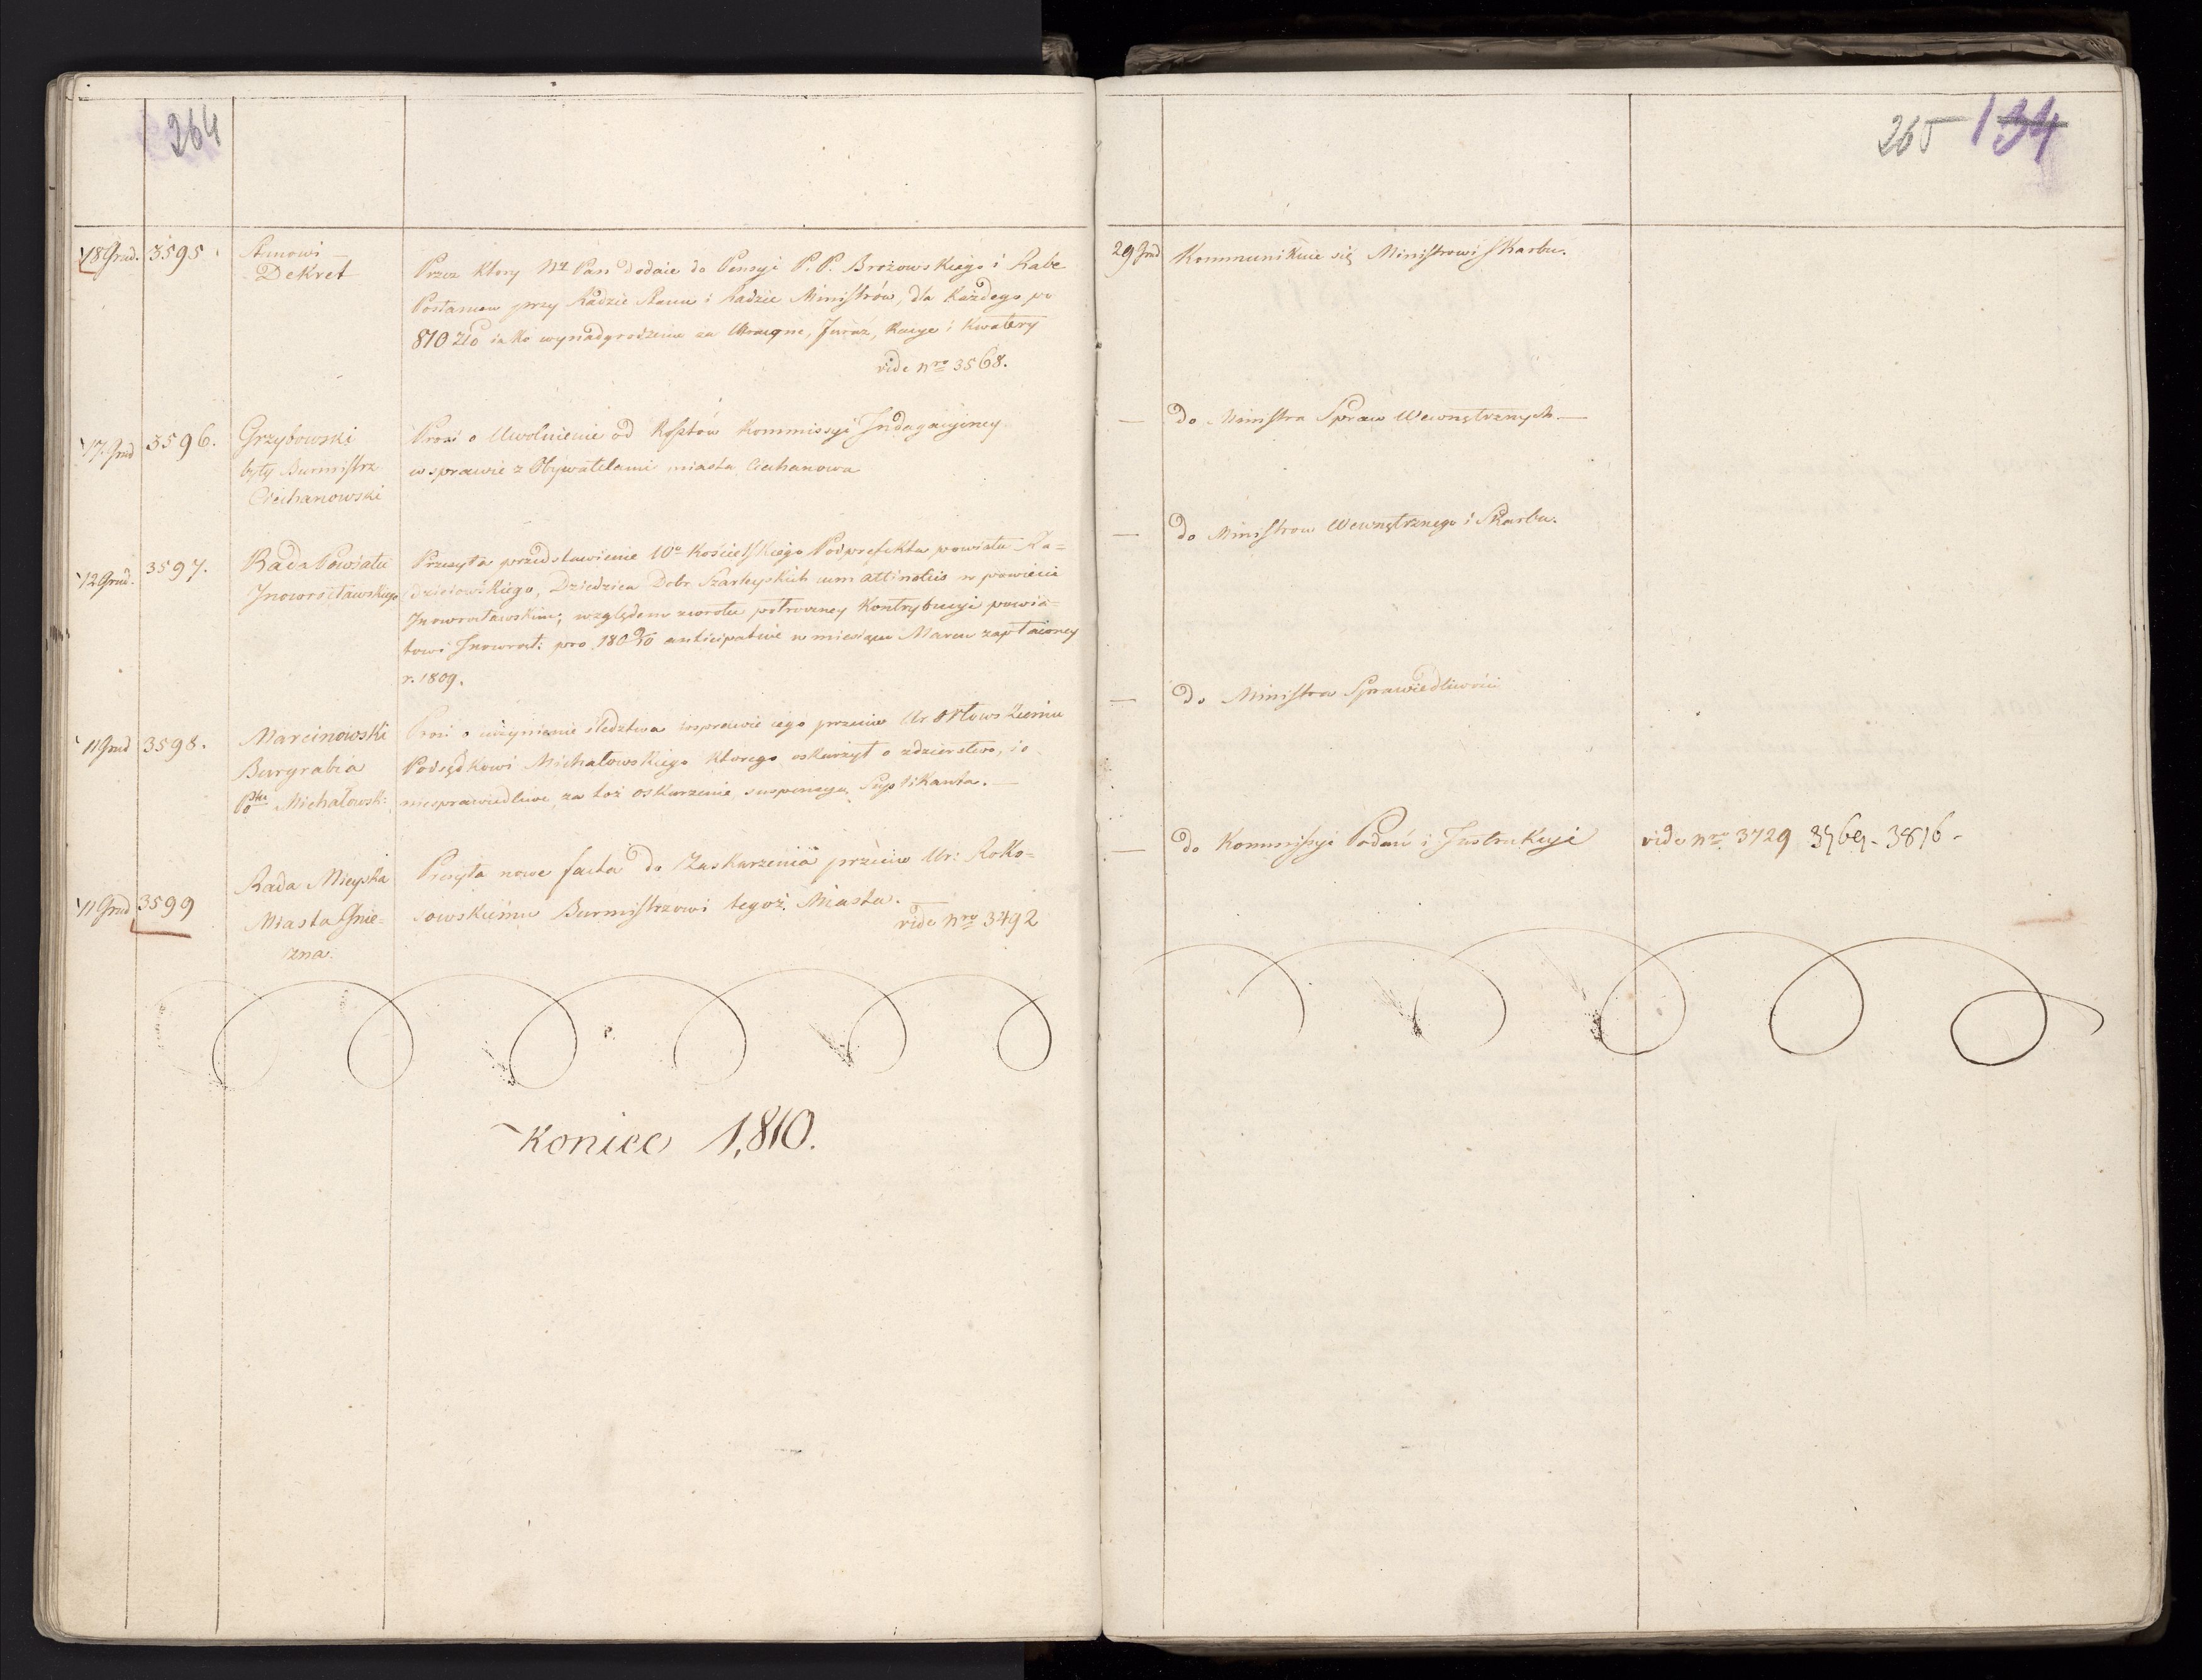 264
18 Grud. 3595.
Dekret
Przez który Nz Pan dodaie do Pensyi P. P. Brozowskiego i Rabe
przy Radzie Stanu i Radzie Ministrów, dla Każdego po
810 zło iako wynadgrodzenie za Furaż, Racye i Kwatery
vide nro 3568.
17. Grud 3596. Grzybowski
były Burmistrz
Ciechanowski
Prosi o Uwolnienie od Kosztów Kommissyi Indagacyiney
w sprawie z Obywatelami miasta Ciechanowa
12 Grud. 3597. Rada Powiatu
Jnowrocławskiego
Przesyła przedstawienie Kościelskiego Podprefekta powiatu Ra=
dzieiowskiego, Dziedzica Dobr Szarleyskich cum attinentiis w powiecie
Jnowrocławskim; względem zwrotu potroczney Kontrybucyi powia=
towi Jnowrocł: pro 1809/10 anticipative w miesiącu Marcu zapłaconey
r. 1809.
11 Grud 3598. Marcinowski
Burgrabia
Michałowsk:
Prosi o uczynienie śledztwa w sprawie iego przeciw Ur Orłowskiemu
Podsędkowi Michałowskiego którego oskarżył o zdzierstwo, i o
niesprawiedliwe, za toż oskarżenie suspensyą Suplikanta. —
11 Grud 3599 Rada Mieyska
Miasta Gnie=
zna.
Przesyła nowe facta do Zaskarżenia przeciw Ur: Roko=
sowskiemu Burmistrzowi tegoż Miasta.
vide nro 3492
Koniec 1,810.
265 134
29 Grud Kommunikuie się Ministrowi Skarbu.
— do Ministra Spraw Wewnętrznych —
— do Ministrów Wewnętrznego i Skarbu.
— do Ministra Sprawiedliwości
— do Kommissyi Podań i Instrukcyi vide nro 3729 3769 - 3816 -